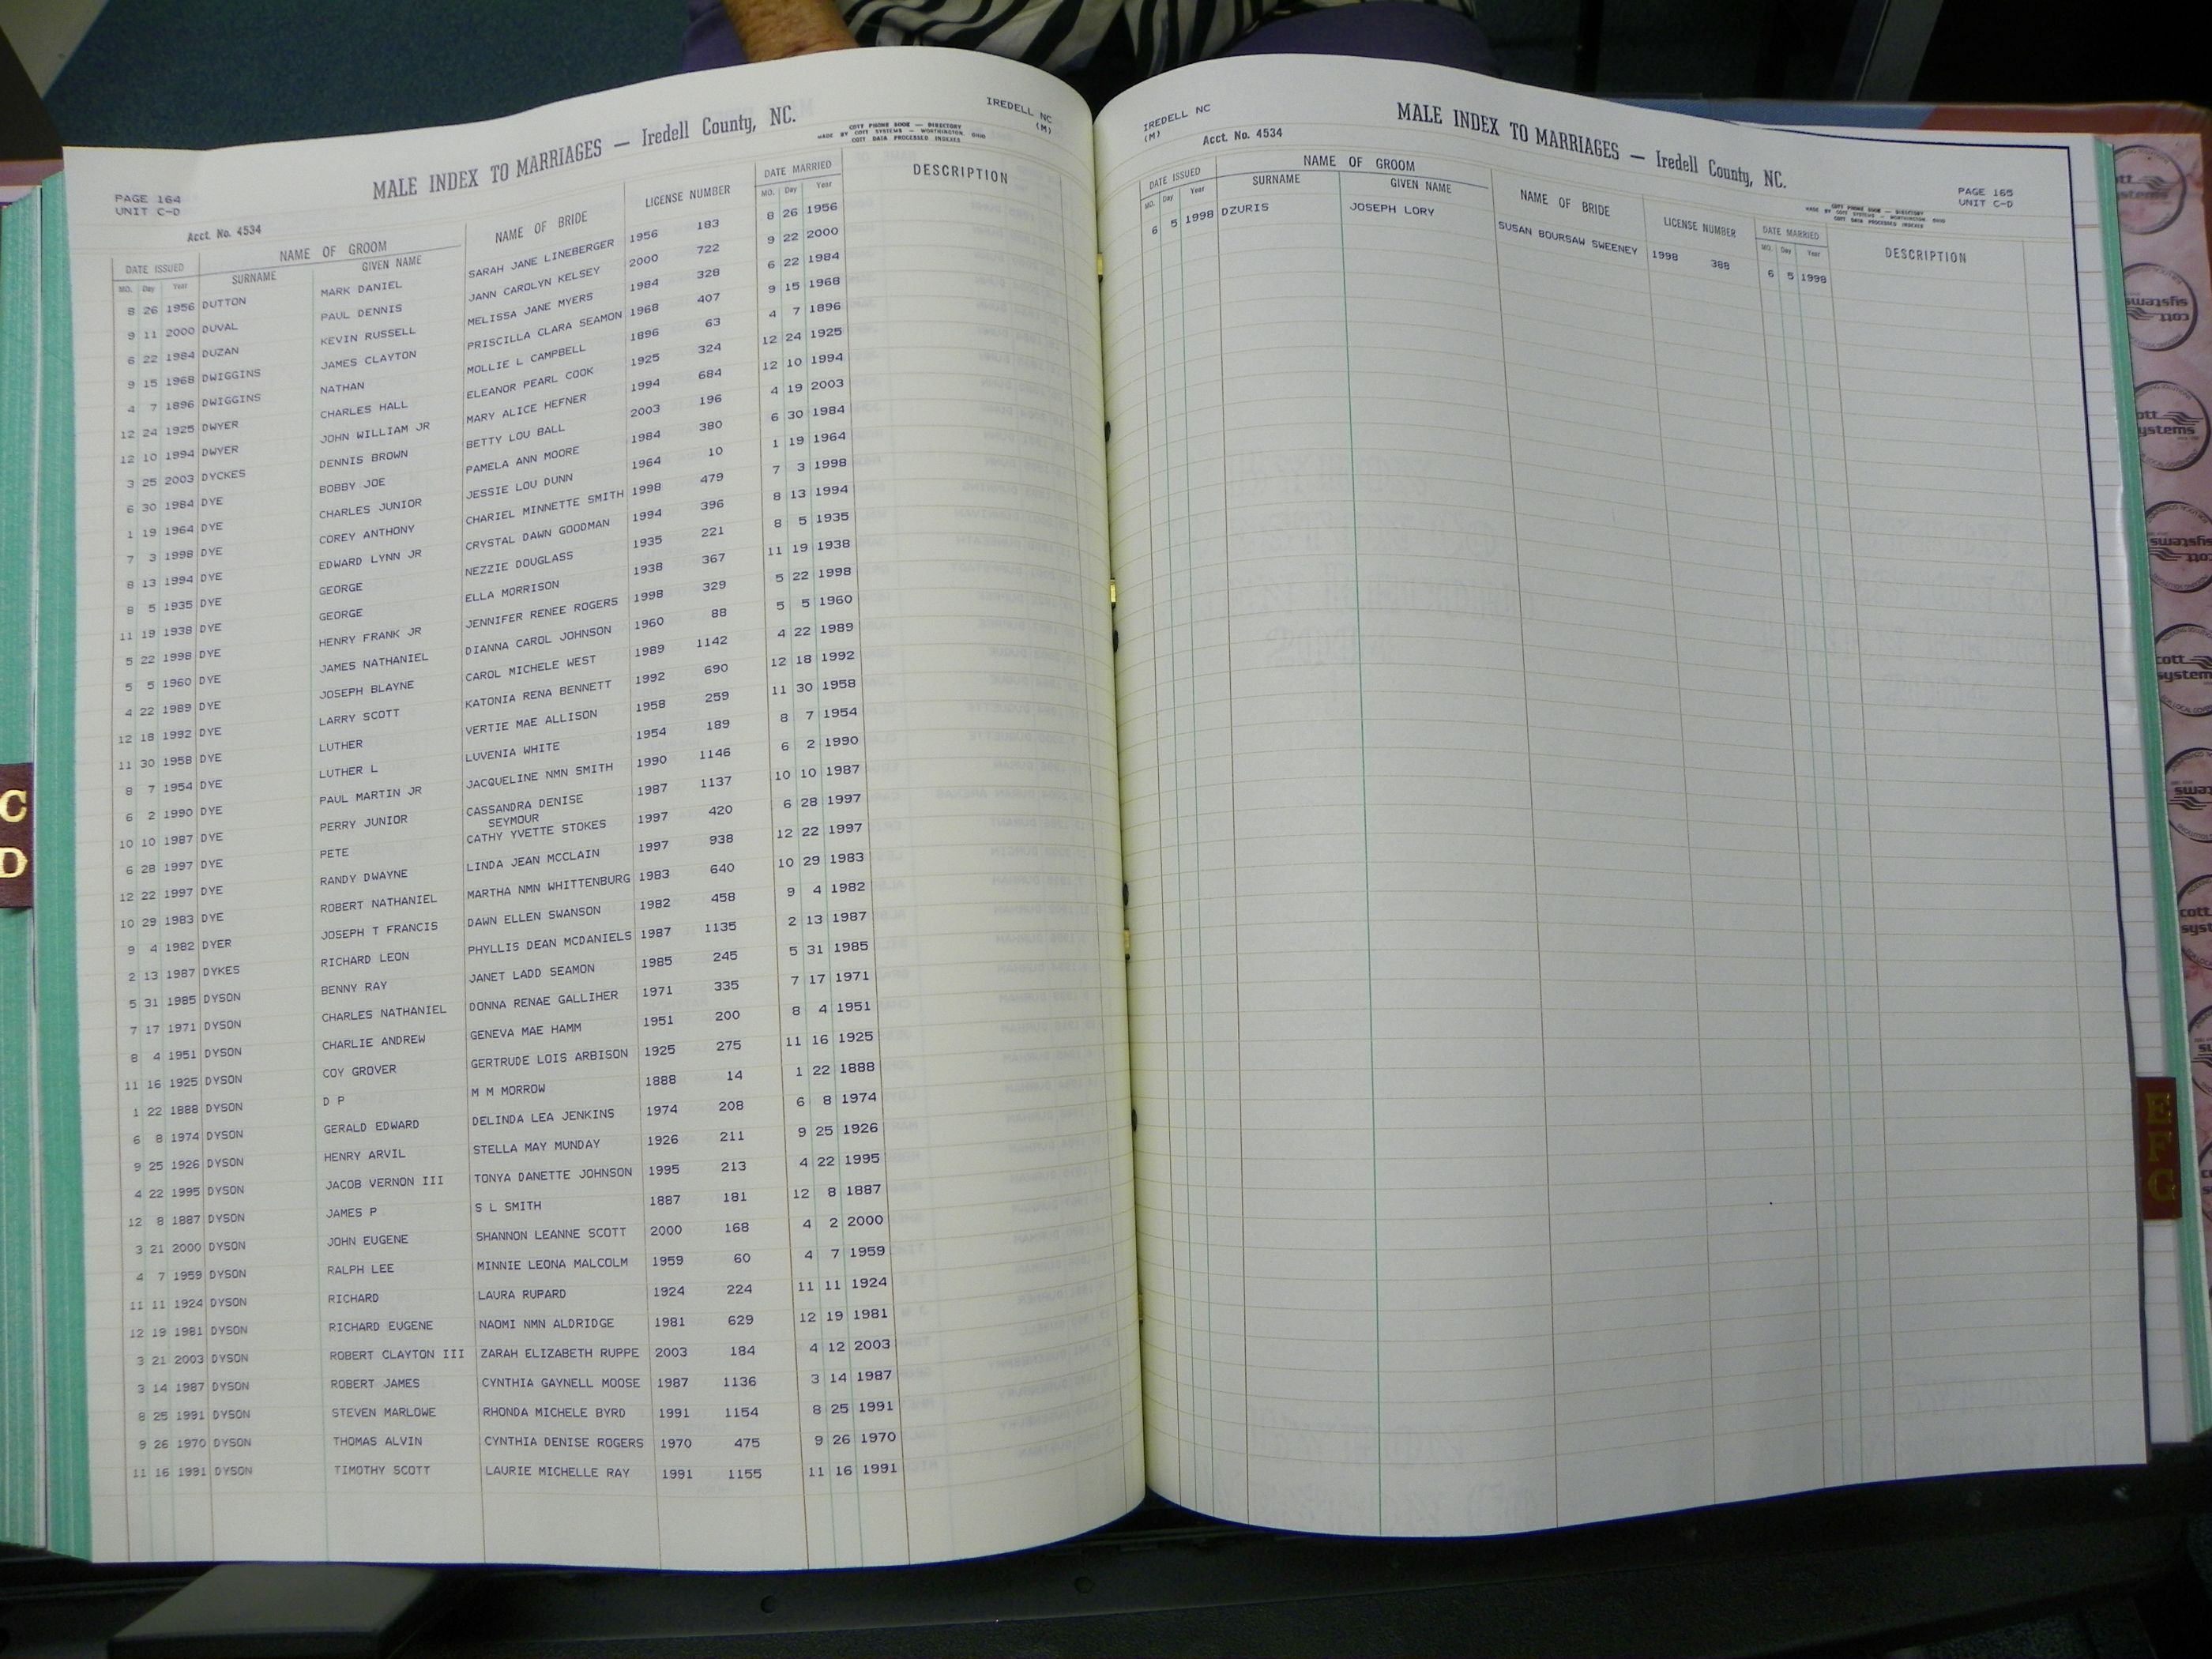 PAGE 164
UNIT C-D
MALE INDEX TO MARRIAGES — Iredell County, NC.
IREDELL NC
(M)
COTT PHONE BOOK — DIRECTORY
MADE BY COTT SYSTEMS — WORTHINGTON, OHIO
COTT DATA PROCESSED INDEXES
Acct. No. 4534
DATE ISSUED NAME OF GROOM NAME OF BRIDE LICENSE NUMBER DATE MARRIED DESCRIPTION
MO. Day Year SURNAME GIVEN NAME MO. Day Year
8 26 1956 DUTTON MARK DANIEL SARAH JANE LINEBERGER 1956 183 8 26 1956
9 11 2000 DUVAL PAUL DENNIS JANN CAROLYN KELSEY 2000 722 9 22 2000
6 22 1984 DUZAN KEVIN RUSSELL MELISSA JANE MYERS 1984 328 6 22 1984
9 15 1968 DWIGGINS JAMES CLAYTON PRISCILLA CLARA SEAMON 1968 407 9 15 1968
4 7 1896 DWIGGINS NATHAN MOLLIE L CAMPBELL 1896 63 4 7 1896
12 24 1925 DWYER CHARLES HALL ELEANOR PEARL COOK 1925 324 12 24 1925
12 10 1994 DWYER JOHN WILLIAM JR MARY ALICE HEFNER 1994 684 12 10 1994
3 25 2003 DYCKES DENNIS BROWN BETTY LOU BALL 2003 196 4 19 2003
6 30 1984 DYE BOBBY JOE PAMELA ANN MOORE 1984 380 6 30 1984
1 19 1964 DYE CHARLES JUNIOR JESSIE LOU DUNN 1964 10 1 19 1964
7 3 1998 DYE COREY ANTHONY CHARIEL MINNETTE SMITH 1998 479 7 3 1998
8 13 1994 DYE EDWARD LYNN JR CRYSTAL DAWN GOODMAN 1994 396 8 13 1994
8 5 1935 DYE GEORGE NEZZIE DOUGLASS 1935 221 8 5 1935
11 19 1938 DYE GEORGE ELLA MORRISON 1938 367 11 19 1938
5 22 1998 DYE HENRY FRANK JR JENNIFER RENEE ROGERS 1998 329 5 22 1998
5 5 1960 DYE JAMES NATHANIEL DIANNA CAROL JOHNSON 1960 88 5 5 1960
4 22 1989 DYE JOSEPH BLAYNE CAROL MICHELE WEST 1989 1142 4 22 1989
12 18 1992 DYE LARRY SCOTT KATONIA RENA BENNETT 1992 690 12 18 1992
11 30 1958 DYE LUTHER VERTIE MAE ALLISON 1958 259 11 30 1958
8 7 1954 DYE LUTHER L LUVENIA WHITE 1954 189 8 7 1954
6 2 1990 DYE PAUL MARTIN JR JACQUELINE NMN SMITH 1990 1146 6 2 1990
10 10 1987 DYE PERRY JUNIOR CASSANDRA DENISE 1987 1137 10 10 1987
SEYMOUR
6 28 1997 DYE PETE CATHY YVETTE STOKES 1997 420 6 28 1997
12 22 1997 DYE RANDY DWAYNE LINDA JEAN MCCLAIN 1997 938 12 22 1997
10 29 1983 DYE ROBERT NATHANIEL MARTHA NMN WHITTENBURG 1983 640 10 29 1983
9 4 1982 DYER JOSEPH T FRANCIS DAWN ELLEN SWANSON 1982 458 9 4 1982
2 13 1987 DYKES RICHARD LEON PHYLLIS DEAN MCDANIELS 1987 1135 2 13 1987
5 31 1985 DYSON BENNY RAY JANET LADD SEAMON 1985 245 5 31 1985
7 17 1971 DYSON CHARLES NATHANIEL DONNA RENAE GALLIHER 1971 335 7 17 1971
8 4 1951 DYSON CHARLIE ANDREW GENEVA MAE HAMM 1951 200 8 4 1951
11 16 1925 DYSON COY GROVER GERTRUDE LOIS ARBISON 1925 275 11 16 1925
1 22 1888 DYSON D P M M MORROW 1888 14 1 22 1888
6 8 1974 DYSON GERALD EDWARD DELINDA LEA JENKINS 1974 208 6 8 1974
9 25 1926 DYSON HENRY ARVIL STELLA MAY MUNDAY 1926 211 9 25 1926
4 22 1995 DYSON JACOB VERNON III TONYA DANETTE JOHNSON 1995 213 4 22 1995
12 8 1887 DYSON JAMES P S L SMITH 1887 181 12 8 1887
3 21 2000 DYSON JOHN EUGENE SHANNON LEANNE SCOTT 2000 168 4 2 2000
4 7 1959 DYSON RALPH LEE MINNIE LEONA MALCOLM 1959 60 4 7 1959
11 11 1924 DYSON RICHARD LAURA RUPARD 1924 224 11 11 1924
12 19 1981 DYSON RICHARD EUGENE NAOMI NMN ALDRIDGE 1981 629 12 19 1981
3 21 2003 DYSON ROBERT CLAYTON III ZARAH ELIZABETH RUPPE 2003 184 4 12 2003
3 14 1987 DYSON ROBERT JAMES CYNTHIA GAYNELL MOOSE 1987 1136 3 14 1987
8 25 1991 DYSON STEVEN MARLOWE RHONDA MICHELE BYRD 1991 1154 8 25 1991
9 26 1970 DYSON THOMAS ALVIN CYNTHIA DENISE ROGERS 1970 475 9 26 1970
11 16 1991 DYSON TIMOTHY SCOTT LAURIE MICHELLE RAY 1991 1155 11 16 1991
C
D
IREDELL NC
(M)
Acct. No. 4534
MALE INDEX TO MARRIAGES — Iredell County, NC.
PAGE 165
UNIT C-D
COTT PHONE BOOK — DIRECTORY
MADE BY COTT SYSTEMS — WORTHINGTON, OHIO
COTT DATA PROCESSED INDEXES
DATE ISSUED NAME OF GROOM NAME OF BRIDE LICENSE NUMBER DATE MARRIED DESCRIPTION
MO. Day Year SURNAME GIVEN NAME MO. Day Year
6 5 1998 DZURIS JOSEPH LORY SUSAN BOURSAW SWEENEY 1998 388 6 5 1998
E
F
G
cott
systems